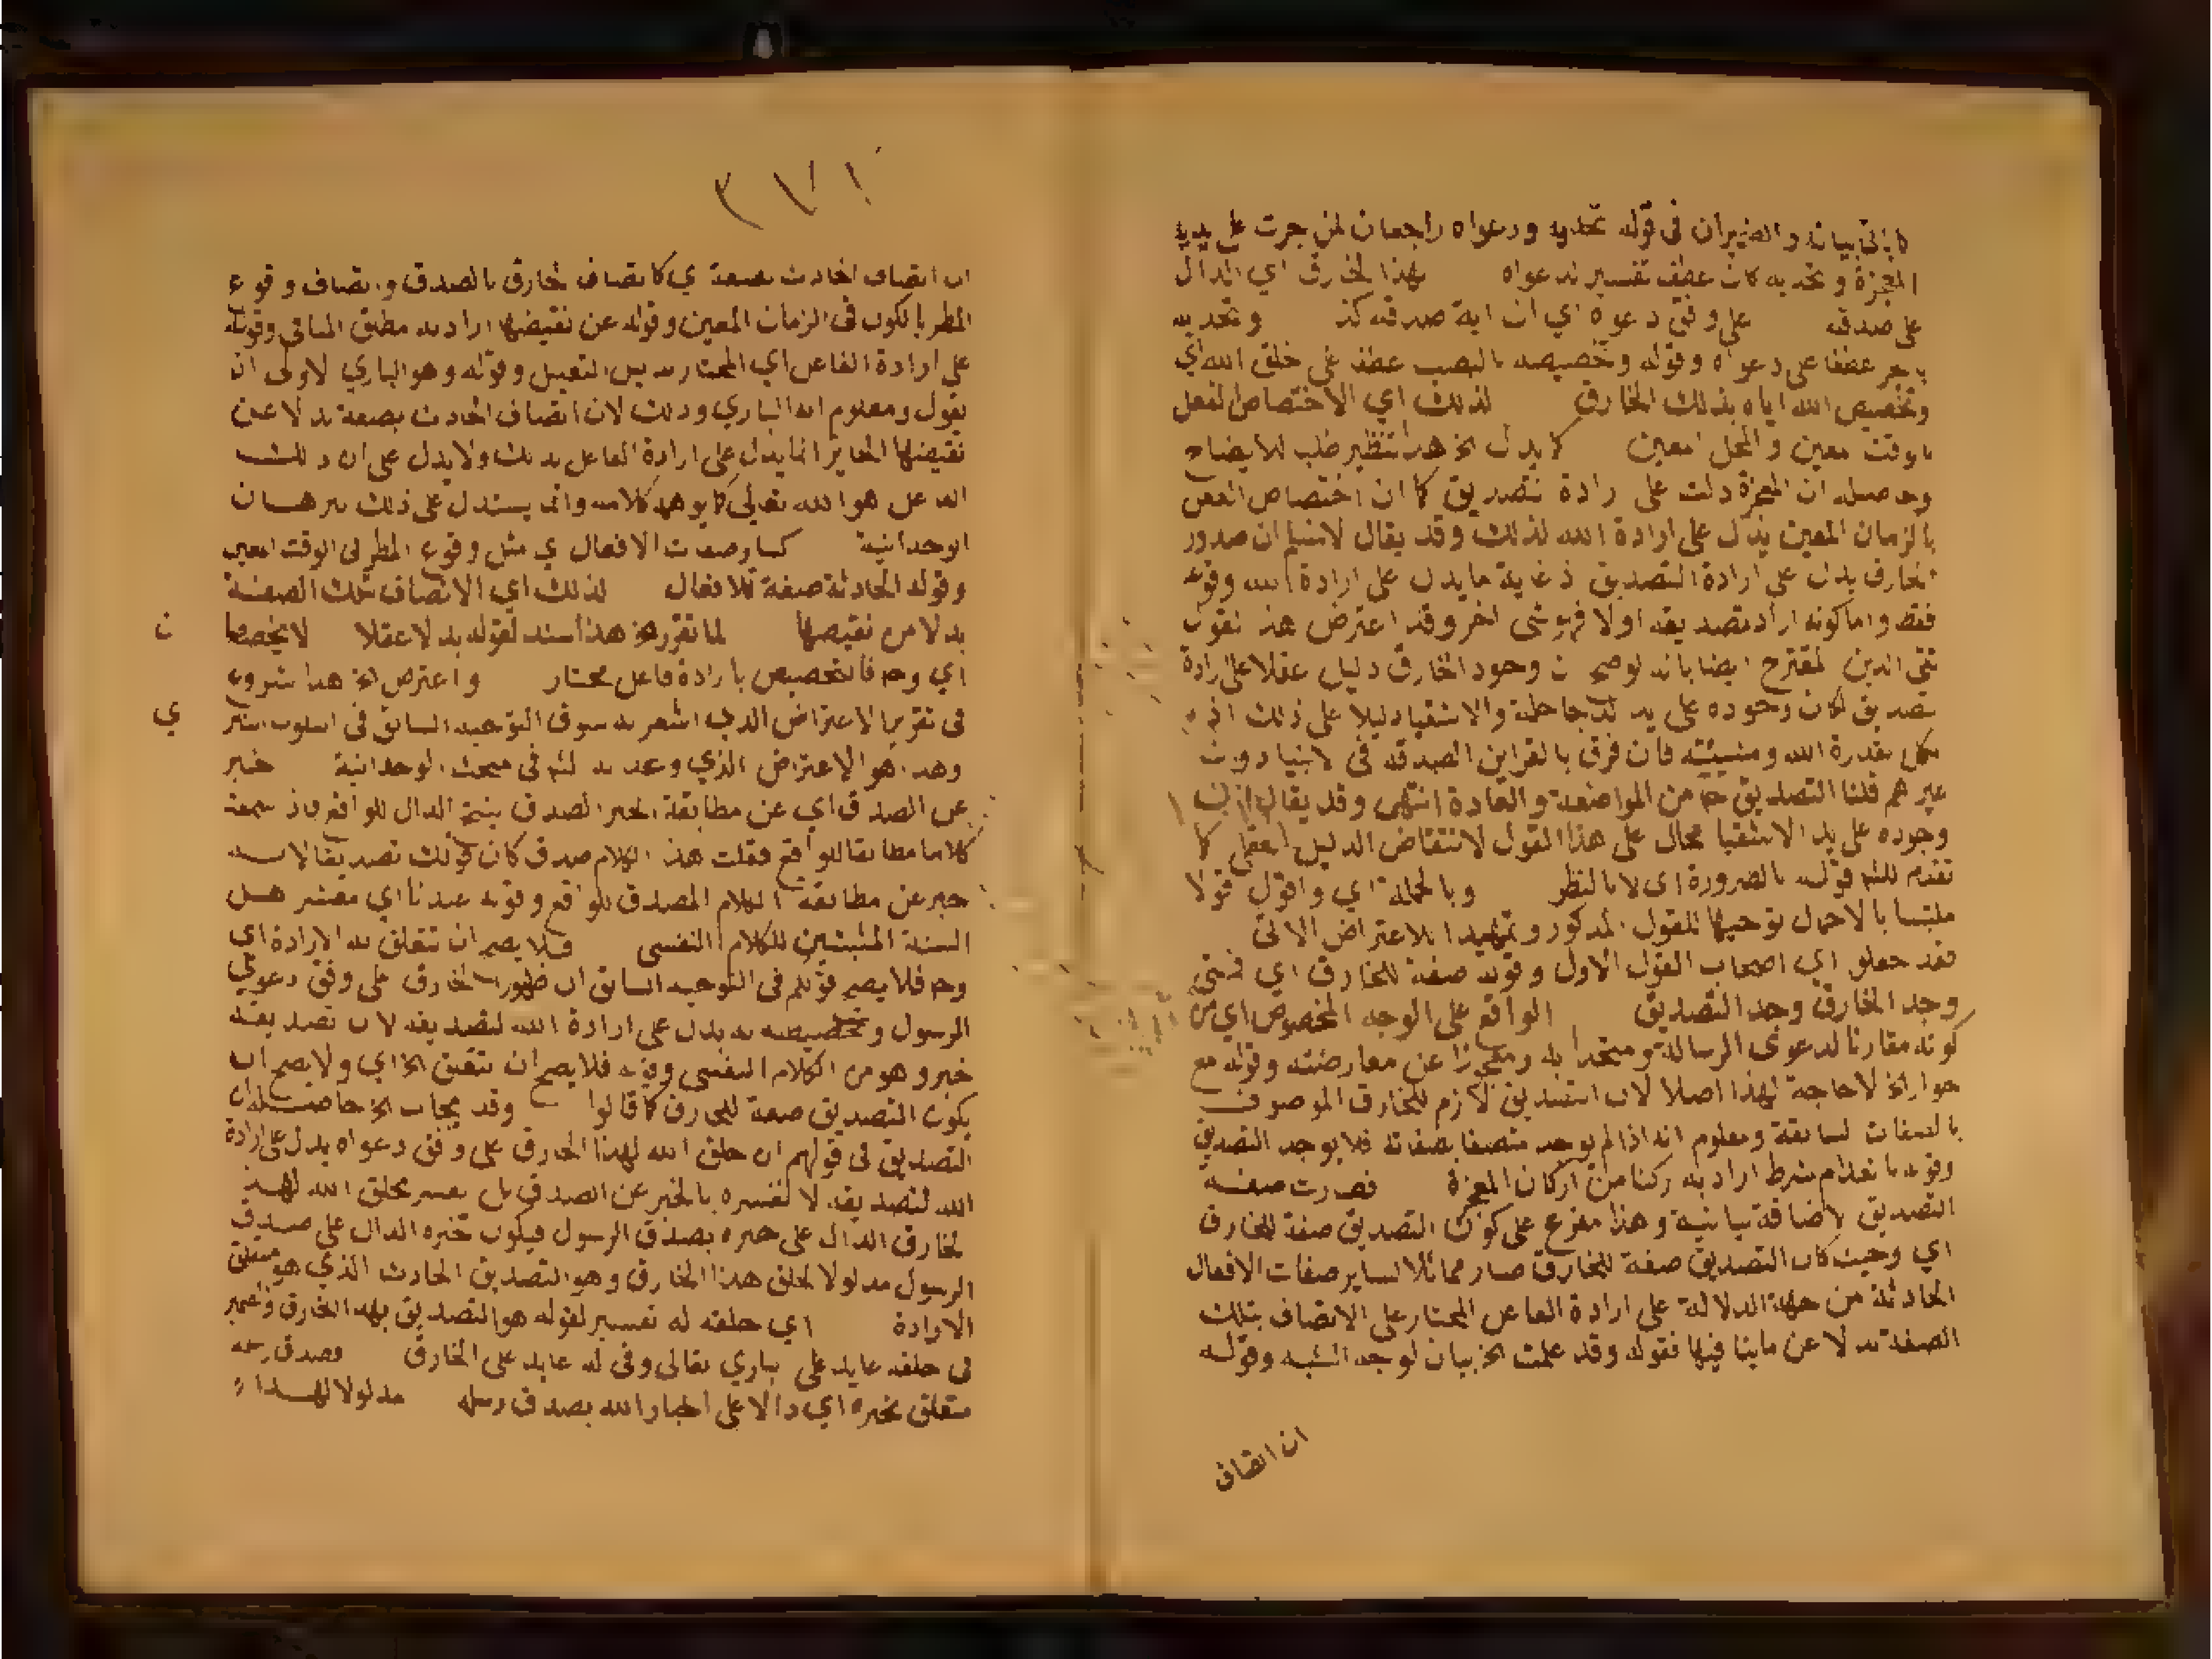 كما يأتي بيانه والضميران في قوله تحديه ودعواه راجعان لمن جرت على يديه
المعجزة وتحديه كان عطف تفسير لدعواه بهذا الخارق اي الدال
على صدقه على وفق دعواه اي ان اية صدقه كذا وتحديه
بالجر عطفا على دعواه وقوله وتخصيصه بالنصب عطف على خلق الله اي
وتخصيص الله اياه بذلك الخارق لذلك اي الاختصاص الفعل
بالوقت معين والمحل المعين كما يدل الخ هذا تنظير طلب للايضاح
وحاصله ان المعجزة دلت على ارادة تصديق كما ان اختصاص الفعل
بالزمان المعين يدل على ارادة الله لذلك وقد يقال لا نسلم ان صدور
الخارق يدل على ارادة التصديق اذ غاية ما يدل على ارادة الله وقوعه
فقط واما كونه اراد تصديقه او لا فهو شي اخر وقد اعترض هذا القول
تقي الدين المقترح ايضا بانه لو صح ان وجود الخارق دليل عقلا على ارادة
تصديق لكان وجوده على يد والاشقيا دليلا على ذلك اذ
الكل بقدرة الله ومشيئته فان فرق بالقراين الصدقه في الانبيا دون
غيرهم قلنا التصديق ح من المواضعة والعادة انتهى وقد يقال ان
وجوده على يد الاشقيا محال على هذا القول لانتقاض الدليل العقلي كما
تقدم للشم قوله بالضرورة اي لا بالنظر وبالجملة اي واقول قولا
ملتبسا بالاجمال توجيها للقول المذكور وتمهيدا للاعتراض الاتي
فقد جعلوا اي اصحاب القول الاول وقوله صفة للخارق اي فمتى
وجد الخارق وجد التصديق الواقع على الوجه المخصوص اي من
كونه مقارنا لدعوى الرسالة ومتحدا به ومعجوزا عن معارضته وقوله مع
جواز الخ لا حاجة لهذا اصلا لان التصديق لازم للخارق الموصوف
بالصفات السابقة ومعلوم انه اذا لم يوجد متصفا بصفاته فلا يوجد التصديق
وقوله بانعدام شرط اراد به ركنا من اركان المعجزة فصارت صفة
التصديق الاضافة بيانية وهذا مفرع على كون التصديق صفة للخارق
اي وحيث كان التصديق صفة للخارق صار مماثلا لساير صفات الافعال
الحادثة من جهة الدلالة على ارادة الفاعل المختار على الاتصاف بتلك
الصفة بدلا عن ماينافيها فقوله وقد علمت الخ بيان لوجه الشبه وقوله
ان اتصاف
٣٧١
ان اتصاف الحادث بصفة اي كاتصاف الخارق بالصدق واتصاف وقوع
المطر بالكون في الزمان المعين وقوله عن نقيضها اراد به مطلق المنافي وقوله
على ارادة الفاعل اي المختار بدليل التعبيل وقوله وهو الباري الاولى ان
يقول ومعلوم انه الباري وذلك لان اتصاف الحادث بصفة بدلا عن
نقيضها الجايز انما يدل على ارادة الفاعل بذلك ولا يدل على ان ذلك
الفاعل هو الله تعالى كما يوهمه كلامه وانما يستدل على ذلك ببرهان
الوحدانية كساير صفات الافعال اي مثل وقوع المطر في الوقت المعين
وقوله الحادثة صفة للافعال لذلك اي الاتصاف بتلك الصفة
بدلا من نقيضها لما تقرر الخ هذا سند لقوله يدل عقلا لا يخصصا ن
اي وح فالتخصيص بارادة فاعل مختار واعترض الخ هذا شروع
في تقرير الاعتراض الذي اشعر به سوق التوجيه السابق في اسلوب التبر ي
وهذا هو الاعتراض الذي وعد به الشم في مبحث الوحدانية خبر
عن الصدق اي عن مطابقة الخبر المصدق بفتح الدال للواقع فاذا سمعت
كلاما مطابقا للواقع فقلت هذا الكلام صدق كان قولك تصديقا لانه
خبر عن مطابقة الكلام المصدق للواقع وقوله عندنا اي معشر اهل
السنة المثبتين للكلام النفسي فلا يصح ان تتعلق به الارادة اي
وح فلا يصح قولكم في التوجيه السابق ان ظهور الخارق على وفق دعوى
الرسول وتخصيصه به يدل على ارادة الله لتصديقه لان تصديقه
خبر وهو من الكلام النفسي وقوله فلا يصح ان تتعلق الخ اي ولا يصح ان
يكون التصديق صفة للخارق كما قالوا وقد يجاب الخ حاصله ان
التصديق في قولهم ان خلق الله لهذا الخارق على وفق دعواه يدل على ارادة
الله لتصديقه لا نفسره بالخبر عن الصدق بل نفسر بخلق الله لهذا
الخارق الدال على خبره بصدق الرسول فيكون خبره الدال على صدق
الرسول مدلولا لخلق هذا الخارق وهو التصديق الحادث الذي هو متعلق
الارادة اي خلقه له تفسير لقوله هو التصديق بهذا الخارق والضمير
في خلقه عايد على الباري تعالى وفي له عايد على الخارق وصدق رسله
متعلق بخبره اي دالا على اخبار الله بصدق رسله مدلولا لهذا